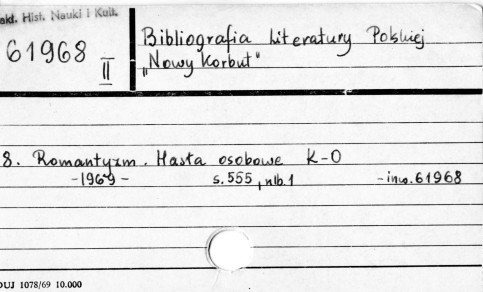 akł. Hist. Nauki i Kult.
61968
II
Bibliografia Literatury Polskiej
"Nowy Korbut"
8. Romantyzm. Hasła osobowe K-O
-1969- s.555, nlb.1 -inw.61968
DUJ 1078/69 10.000